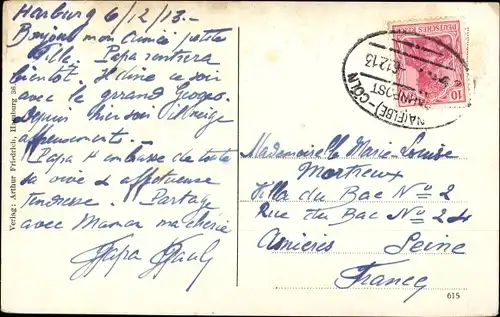 Harburg 6/12/13.-
Bonjour mon Amie petite
fille. Papa rentrera
bientôt. Il dine ce soir
avec le grand Georges.
Depuis hier soir il neige
affreusement. -
Papa t'embrasse de toute
sa vive & affectueuse
tendresse. Partage
avec Maman ma chérie
Papa
Verlag: Arthur Friedrich, Hamburg 36.
DEUTSCHES REICH
10
NA(ELBE)-CÖLN
BAHNPOST
6.12.13
Mademoiselle Marie-Louise
Mortreux
Villa du Bac No 2
Rue du Bac No 24
Asnières Seine
Francy
615